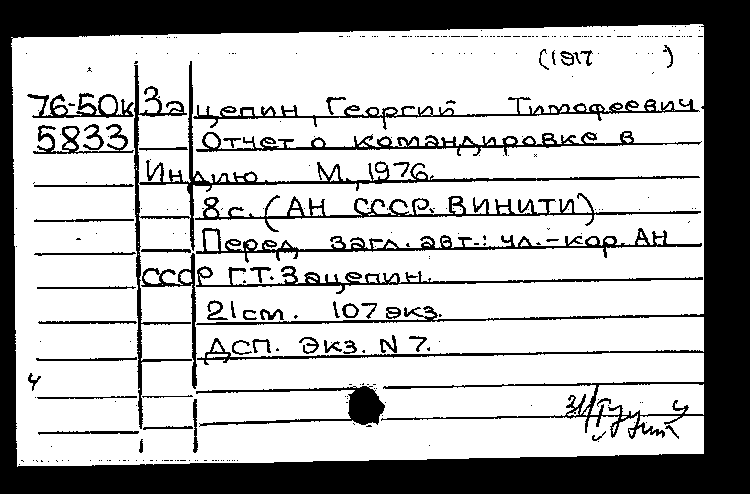 (1917 )
76-50к Зацепин, Георгий Тимофеевич.
5833 Отчет о командировке в
Индию. М., 1976.
8 с. (АН СССР. ВИНИТИ)
Перед загл. авт.: чл.-кор. АН
СССР Г.Т. Зацепин.
21 см. 107 экз.
ДСП. Экз. N 7.
ч